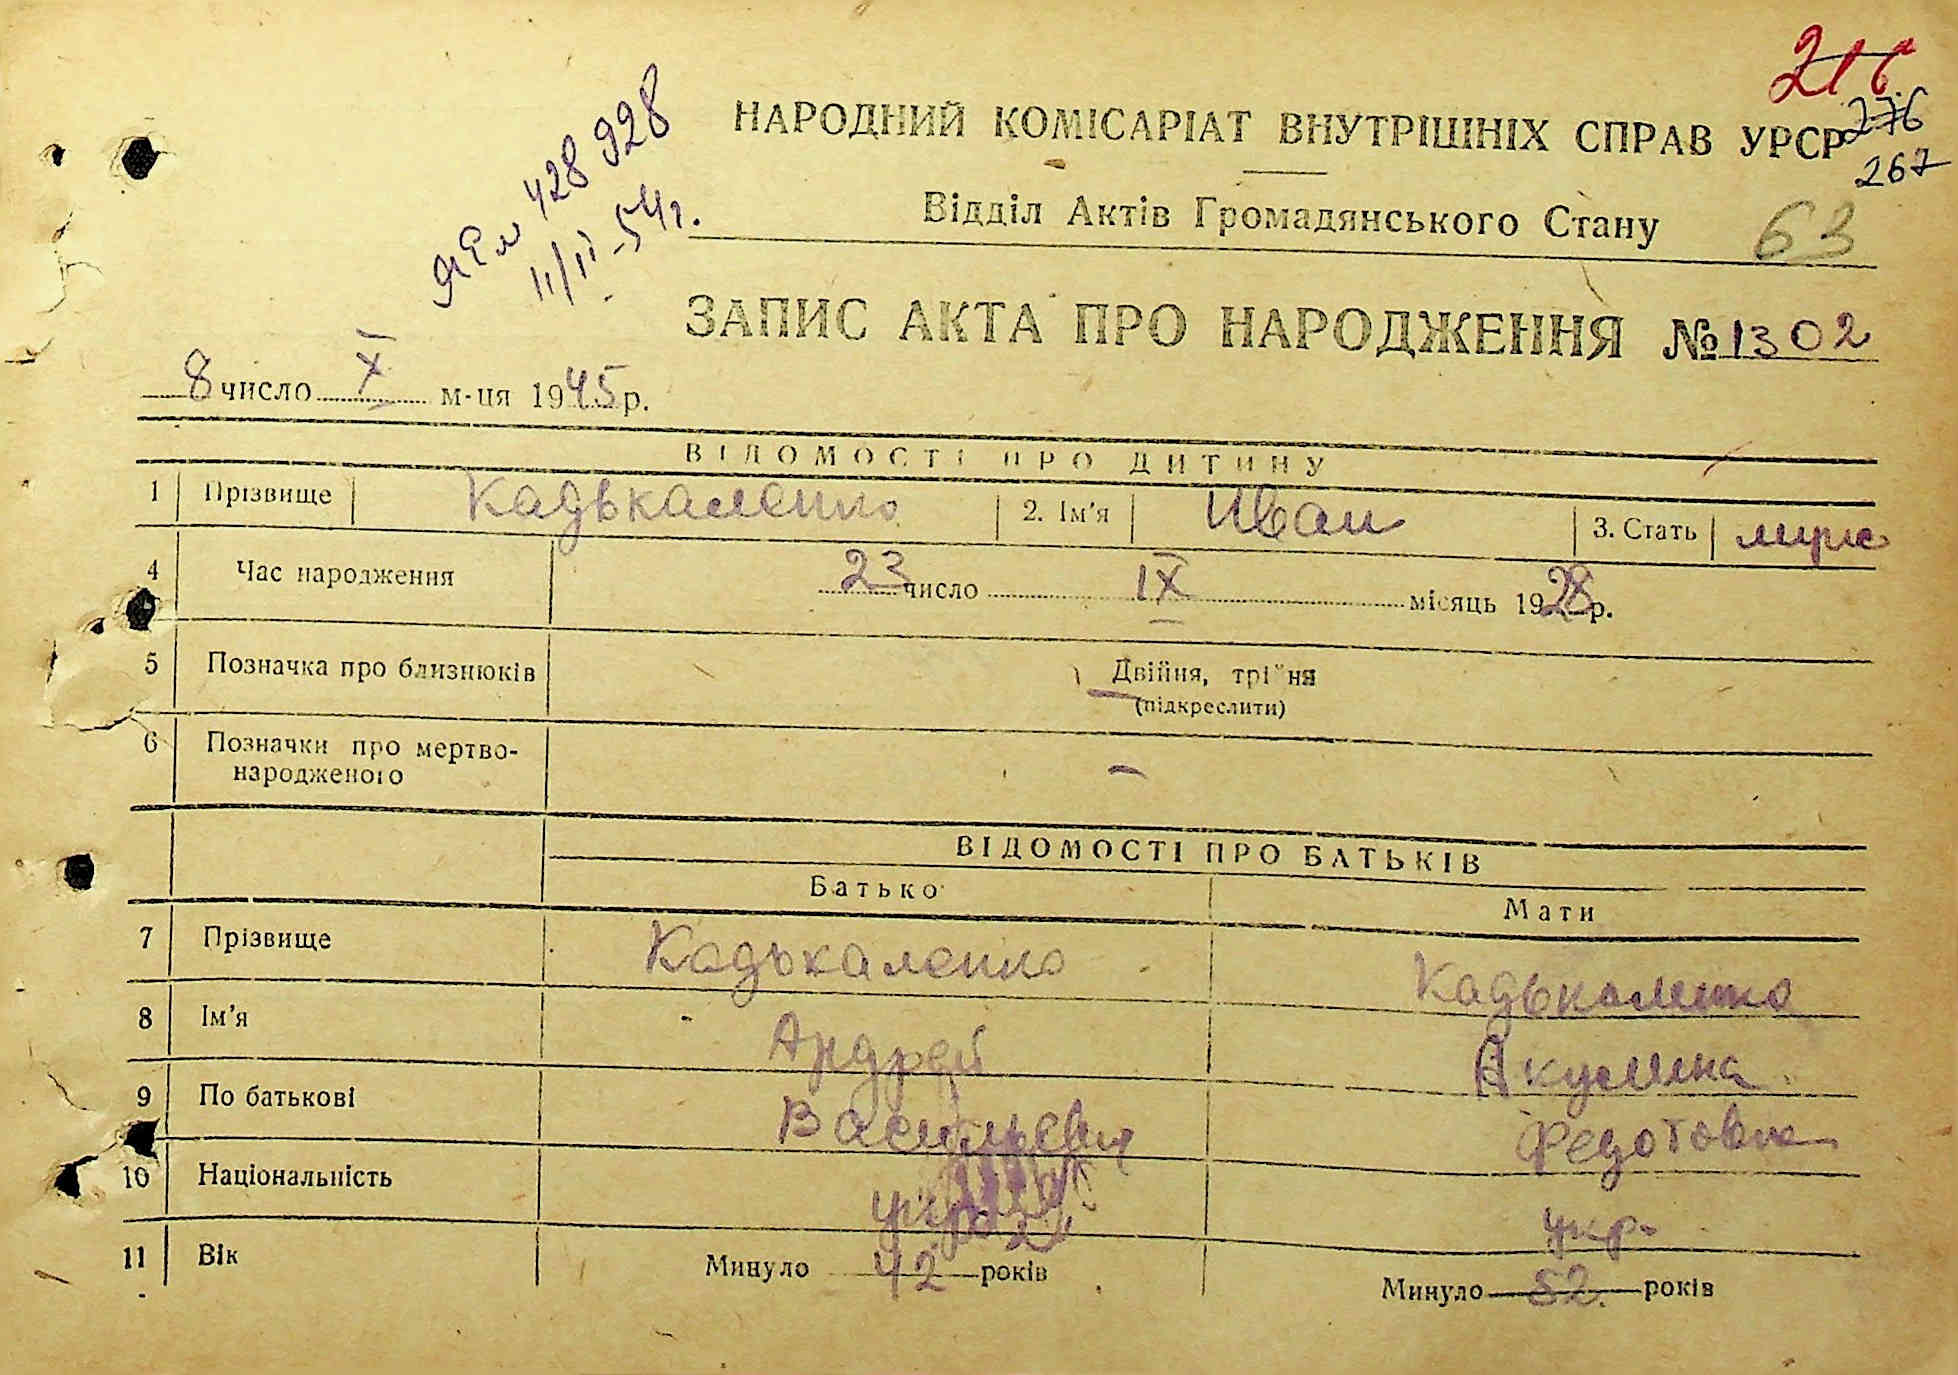 216
НАРОДНИЙ КОМІСАРІАТ ВНУТРІШНІХ СПРАВ УРСР
276
267
428 928
11/II-54г.
Відділ Актів Громадянського Стану
63
ЗАПИС АКТА ПРО НАРОДЖЕННЯ № 1302
8 число X м-ця 1945 р.
ВІДОМОСТІ ПРО ДИТИНУ
1 Прізвище Кадькаленко 2. Ім'я Иван 3. Стать муж
4 Час народження 23 число IX місяць 1928 р.
5 Позначка про близнюків Двійня, трійня
(підкреслити)
6 Позначки про мертво-
народженого -
ВІДОМОСТІ ПРО БАТЬКІВ
Батько Мати
7 Прізвище Кадькаленко Кадькаленко
8 Ім'я Андрей Акулина
9 По батькові Васильевич Федотовна
10 Національність укр укр.
11 Вік Минуло 42 років Минуло 52 років